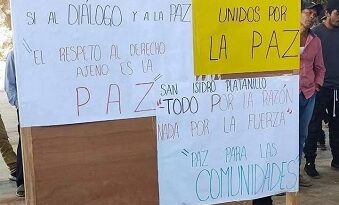 SI AL DIÁLOGO Y A LA PAZ
"EL RESPETO AL DERECHO
AJENO ES LA
PAZ"
UNIDOS POR
LA PAZ
SAN ISIDRO PLATANILLO
"TODO POR LA RAZÓN
NADA POR LA FUERZA"
"PAZ PARA LAS
COMUNIDADES"